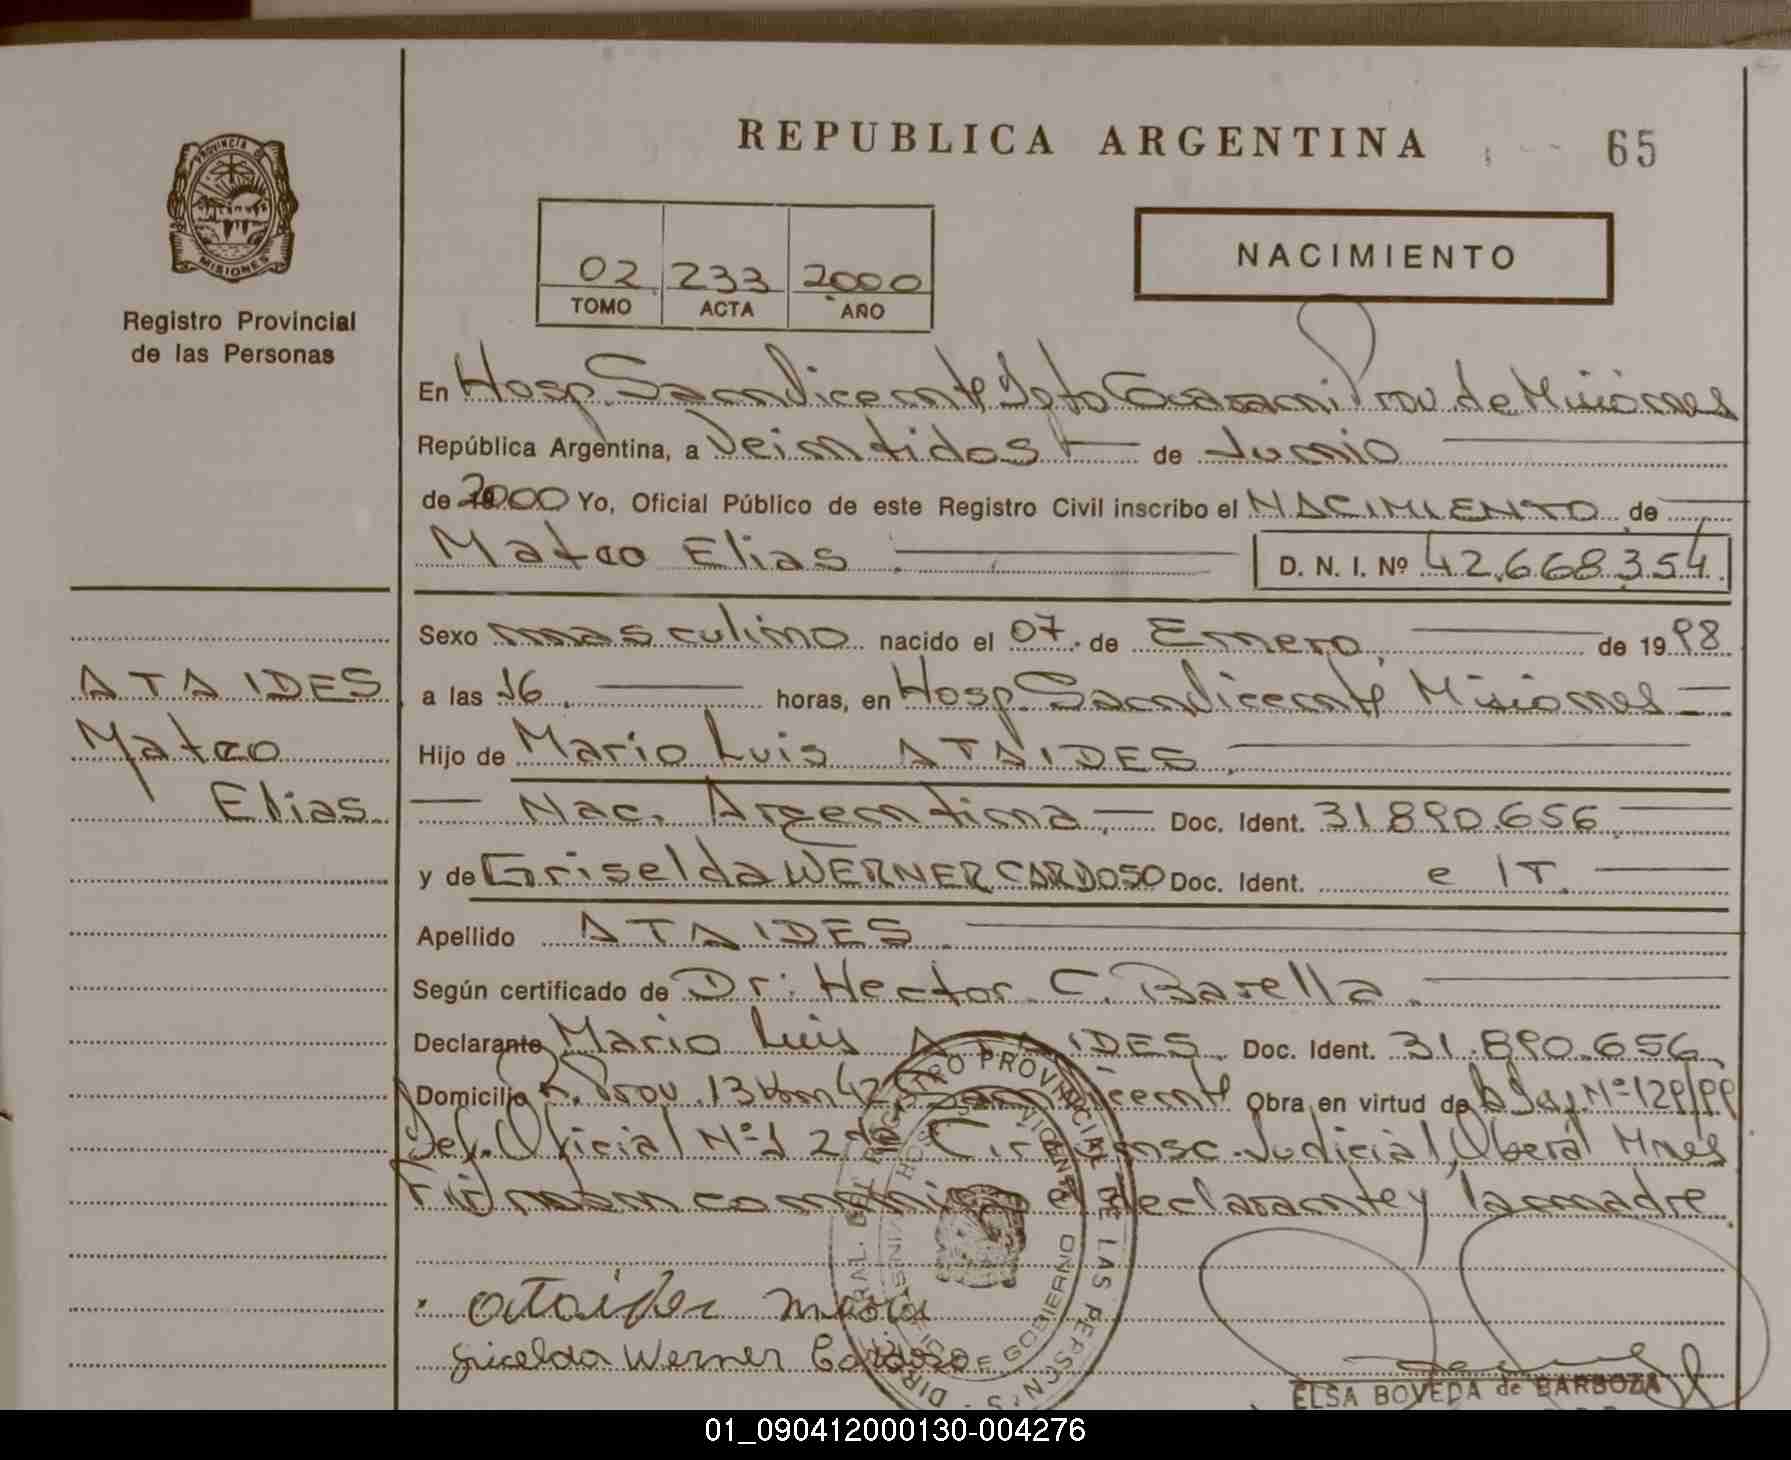 REPUBLICA ARGENTINA
65
PROVINCIA D
MISIONES
Registro Provincial
de las Personas
02 233 2000
TOMO ACTA AÑO
NACIMIENTO
En Hosp. San Vicente Dpto Guarani Prov. de Misiones
República Argentina, a Veintidos de Junio
de 2000 Yo, Oficial Público de este Registro Civil inscribo el NACIMIENTO de
Mateo Elias
D. N. I. Nº 42.668.354
Sexo masculino nacido el 07 de Enero de 1998
ATAIDES
Mateo
Elias
a las 16 horas, en Hosp. San Vicente Misiones
Hijo de Mario Luis ATAIDES
Nac. Argentina Doc. Ident. 31.890.656
y de Griselda WERNER CARDOSO Doc. Ident. e IT.
Apellido ATAIDES
Según certificado de Dr: Hector C. Barella
Declarante Mario Luis ATAIDES Doc. Ident. 31.890.656
Domicilio R. Prov. 13 Km 42 San Vicente Obra en virtud de Nº 129/99
Def. Oficial Nº 1 2da Circunsc. Judicial, Oberá Mnes
Firman conmigo el declarante y la madre.
Ataides Mario
Griselda Werner Cardozo
ELSA BOVEDA de BARBOZA
01_090412000130-004276